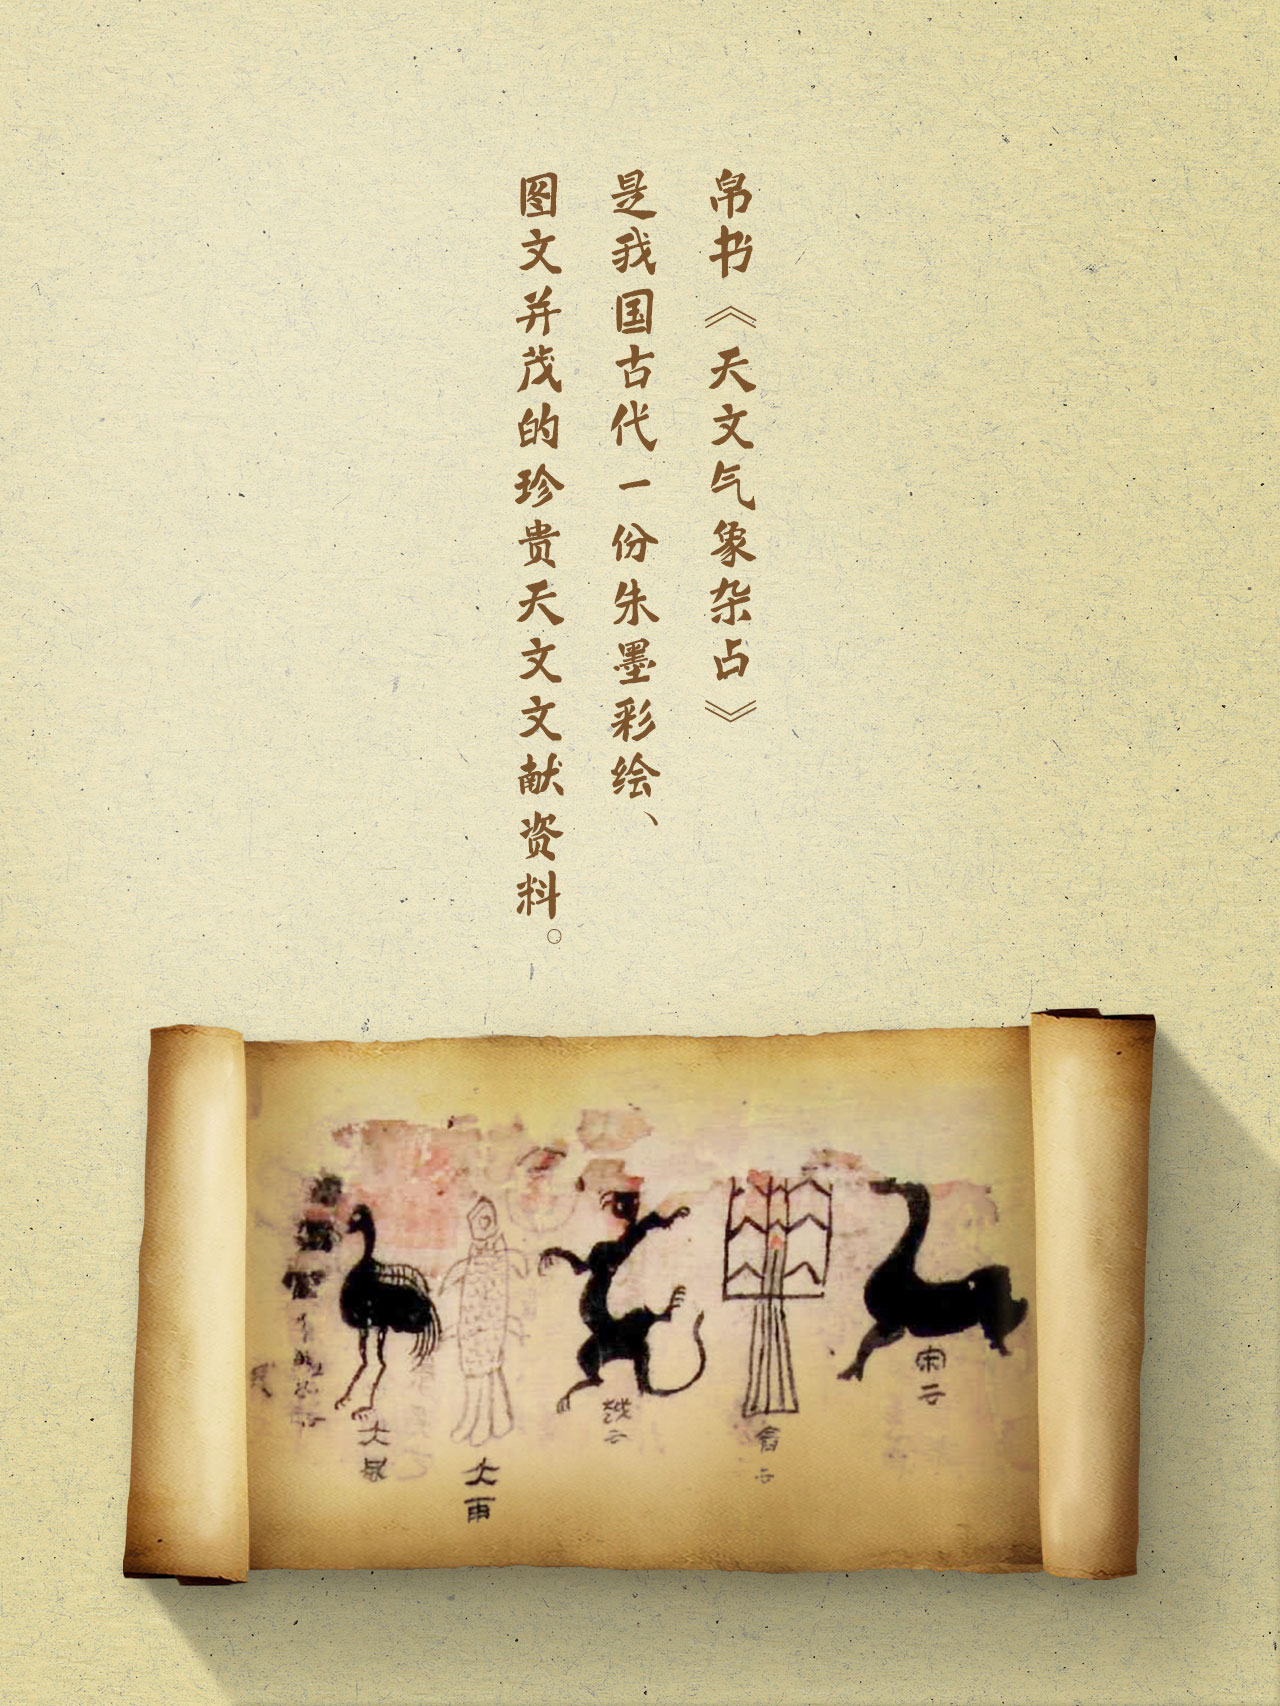 帛书《天文气象杂占》
是我国古代一份朱墨彩绘、
图文并茂的珍贵天文文献资料。
宋云
越云
大雨